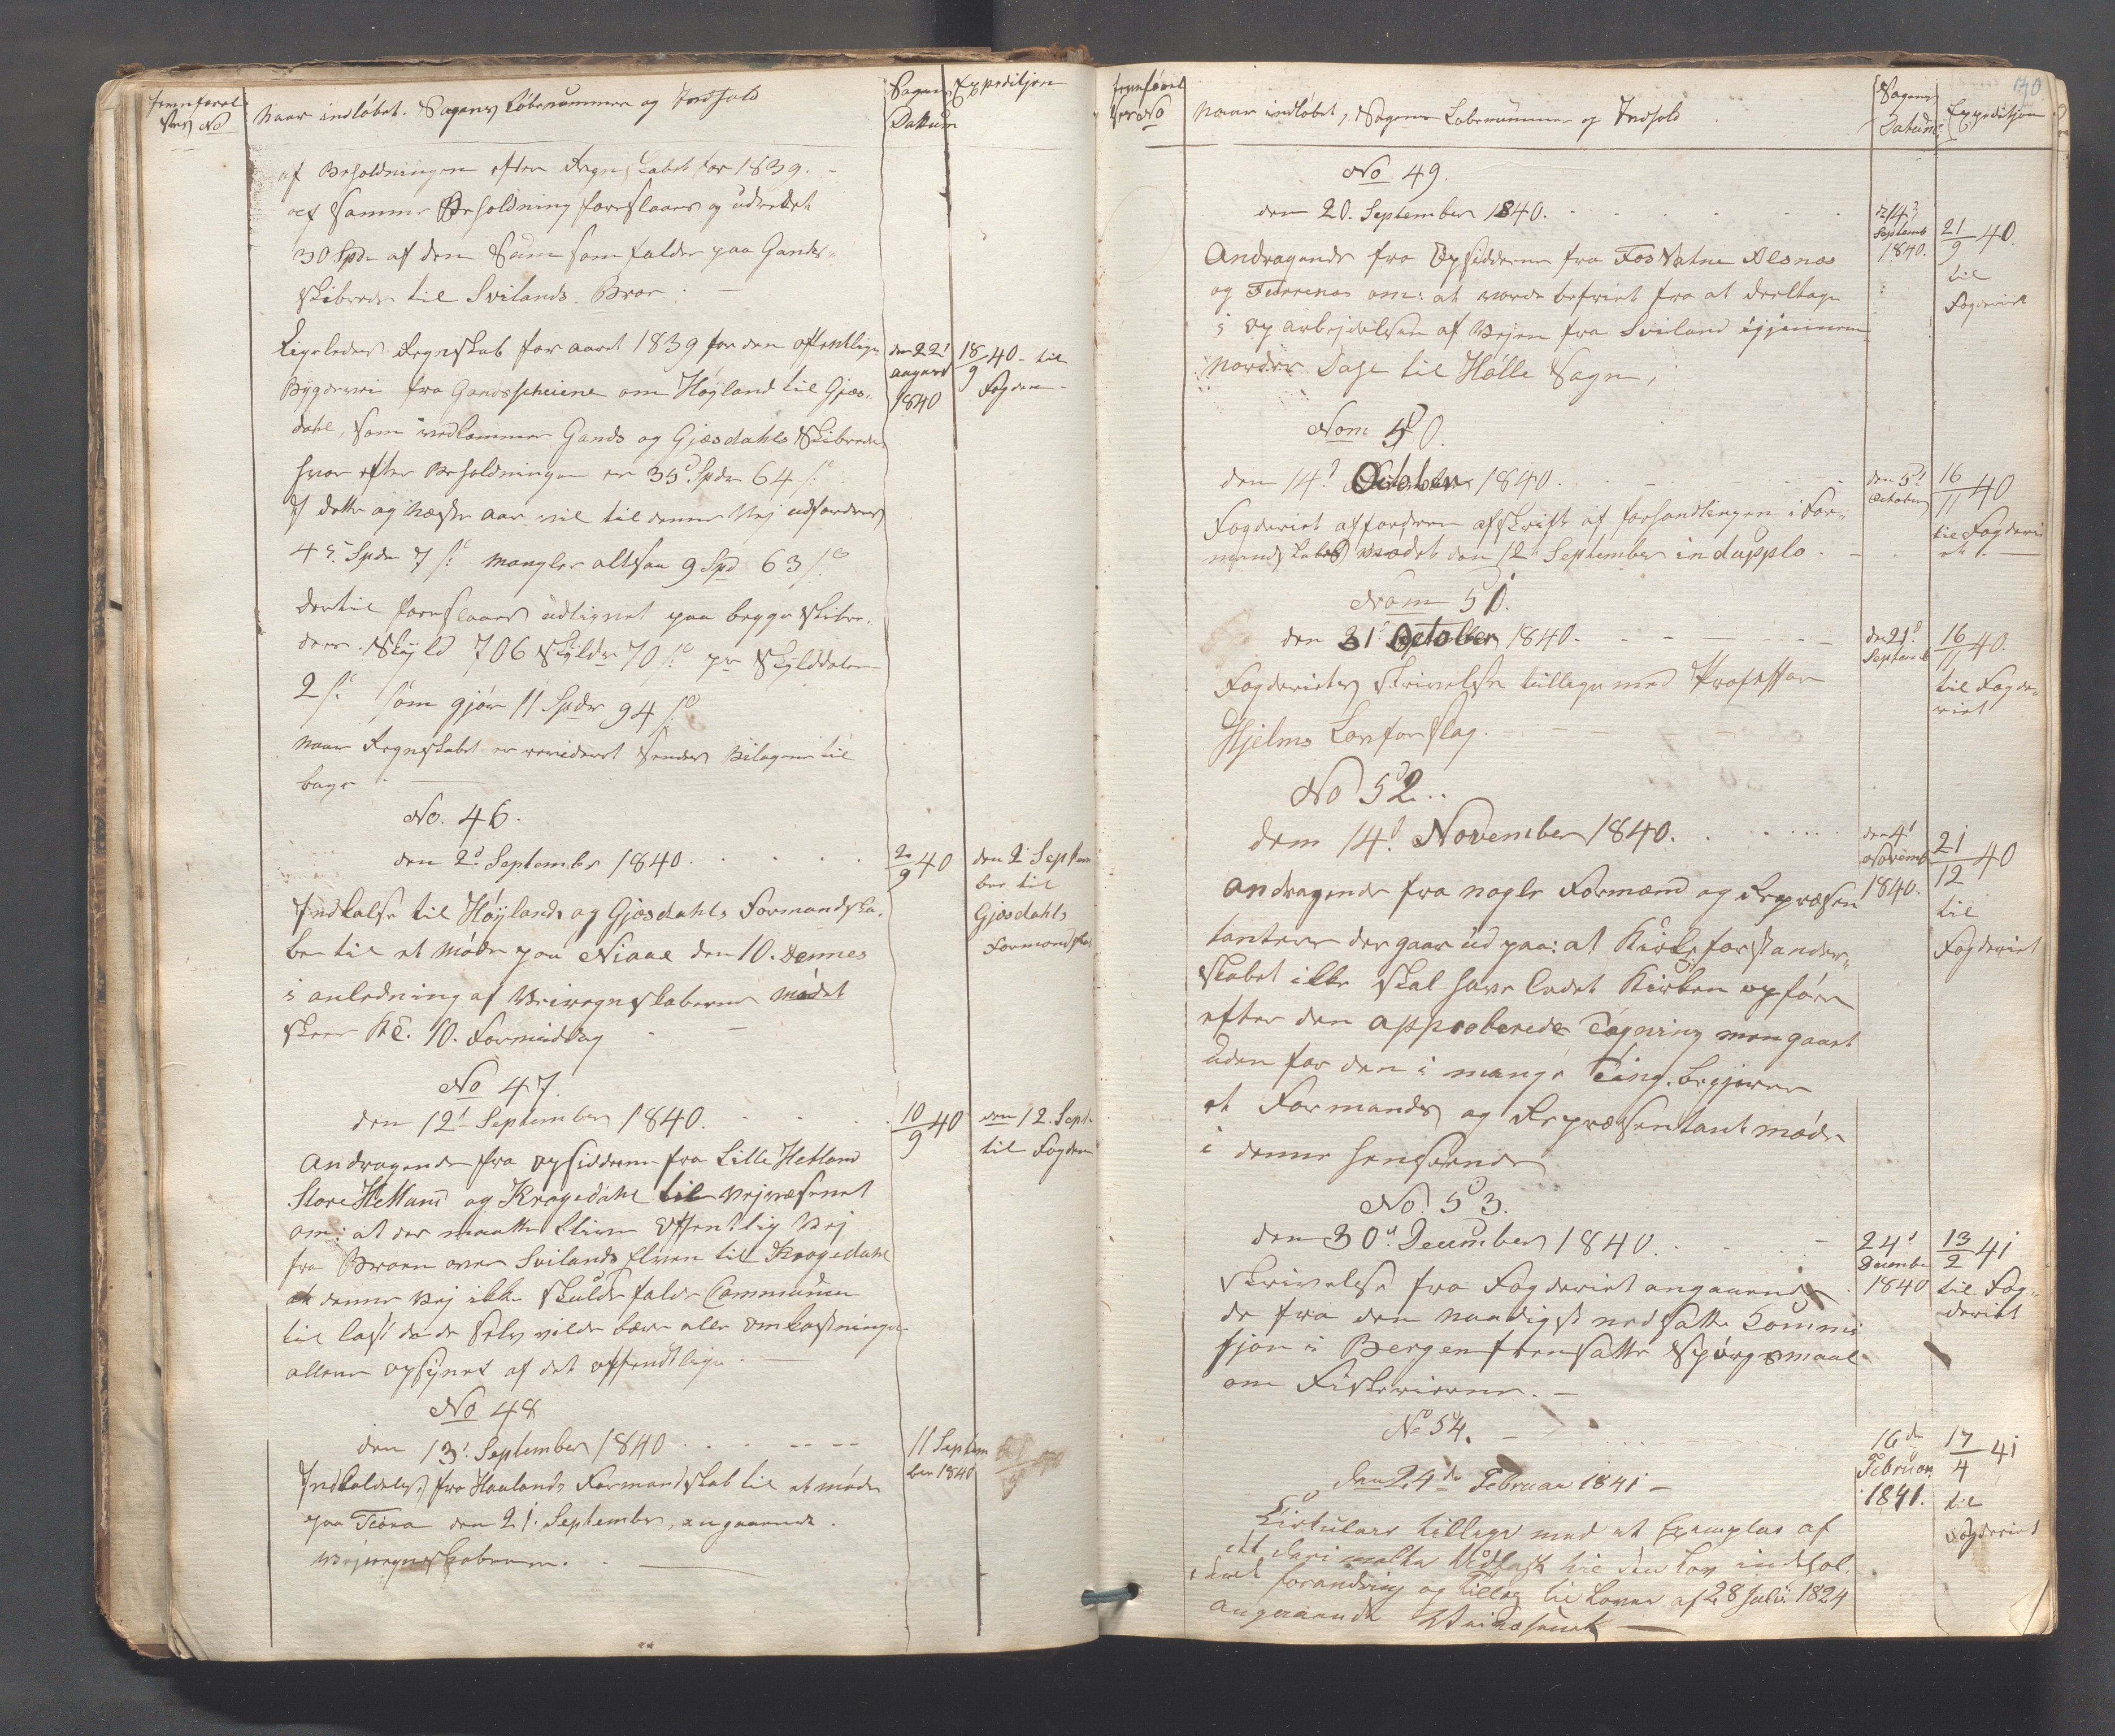 fremførel
ses No
Naar indløbet. Sagens Løbenummer og Indhold
Sagens
Datum
Expeditjon
af Beholdningen efter Regnskabet for 1839. -
af samme Beholdning foreslaaes og udredet
30 Spd af den Sum som falder paa Gands-
skibrede til Svilands Broe. -
Ligeledes Regnskab for aaret 1839 for den offentlige
Bygdevei fra Gandsscheiene om Høyland til Gjes-
dahl, som vedkommer Gands og Gjesdahls Skibreder
hvor efter Beholdningen er 35 Spdr 64 s.
I dette og næste aar vil til denne Vej udfordres
45 Spdr 7 s. mangler altsaa 9 Spd 63 s.
dertil foreslaaes udlignet paa begge Skibre-
ders Skyld 706 Skyldr 70 s. pr Skylddaler
2 s. som gjør 11 Spdr 94 s.
naar Regnskabet er revideret Sendes Bilagene til
bage. -
den 22
august
1840
18/9 40 - til
Fogden -
No. 46.
den 2. September 1840.
2/9 40
den 2 Septem
ber til
Gjesdahls
Formandskab
Indkalse til Høylands og Gjesdahls Formandska-
ber til et Møde paa Niaae den 10. Dennes
i anledning af Veiregnskaberne mødet
skeer Kl. 10. Formiddag -
No 47.
den 12 September 1840.
10/9 40
den 12. Sept.
til Fogden
Andragende fra Opsidderne fra Lille Hetland
Store Hetland og Kragedahl til Vejvæsenet
om: at der maatte blive Offentlig Vej
fra Broen over Svilands Elven til Kragedahl
at denne Vej ikke skulde falde Communen
til last da de selv vilde bære alle omkostninger
allene opsynet af det offendtlige. -
No 48
den 13. September 1840
11 Septem
ber 1840
Indkaldelse fra Haalands Formandskab til et møde
paa Tiora den 21. September, angaaende
Vejregnskaberne. -
fremførel
ses No
Naar indløbet, Sagens Løbenummer og Indhold
Sagens
Datum
Expeditjon
No 49.
den 20. September 1840.
d 14
Septemb
1840.
21/9 40.
til
Fogderiet
Andragende fra Opsidderne fra Fos Vatne Alsnes
og Furrenes om: at vorde befriet fra at deeltage
i oparbejdelsen af Vejen fra Sviland igjennem
Nordre Dahl til Hølle Sogn,
Nom 50.
den 14. October 1840.
den 5
October
16/11 40
til Fogderi
et. -
Fogderiet affordrer afskrift af forhandlingen i For-
mandskabs mødet den 12 September in dupplo. -
Nom 51.
den 21. October 1840.
den 21
Septemb
16/11 40.
til Fogde-
riet
Fogderiets skrivelse tillige med Professor
Hjelms Lovforslag. -
No 52.
dem 14. November 1840.
den 4
Novemb
1840.
21/12 40
til
Fogderiet
andragende fra nogle Formænd og Repræsen
tantere der gaar ud paa: at Kirkeforstander-
skabet ikke skal have ladet Kirken opføre
efter den approberede Tegning men gaaet
uden for den i mange Ting. begjerer
et Formands og Repræsentant møde
i denne henseende
No. 53.
den 30. December 1840.
24
December
1840
13/2 41
til Fog-
deriet
Skrivelse fra Fogderiet angaaende
de fra den naadigst nedsatte Commi
sjon i Bergen fremsatte Spørgsmaal
om Fiskerierne. -
No 54.
den 24de Februar 1841 -
16de
Februar
1841.
17/4 41
til
Fogderiet
Cirkulare tillige med et Exemplar af
forandring og Tillæg til Loven af 28 Juli 1824
angaaende Veivæsenet